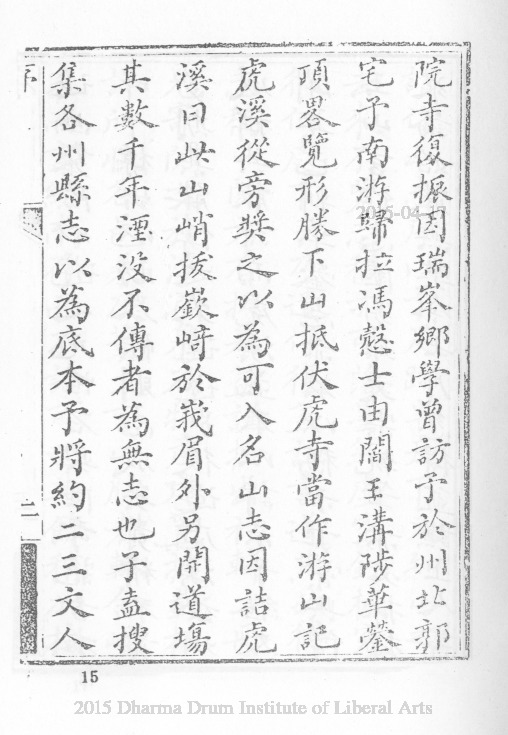 院寺復振因瑞峯鄉學曾訪予於州北郭
宅予南游歸拉馮愨士由閻王溝陟華蓥
頂畧覽形勝下山抵伏虎寺當作游山記
虎溪從旁奬之以為可入名山志因詰虎
溪曰此山峭拔嶔﨑於峩眉外另開道場
其數千年湮没不傳者為無志也子盍搜
集各州縣志以為底本予將約二三文人
序
二
15
2015-04-17
2015 Dharma Drum Institute of Liberal Arts